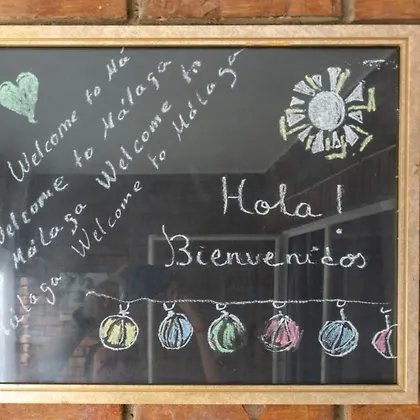 Welcome to Má
Welcome to Málaga
Welcome to Málaga Welcome to
Málaga Welcome to Málaga
Hola!
Bienvenidos